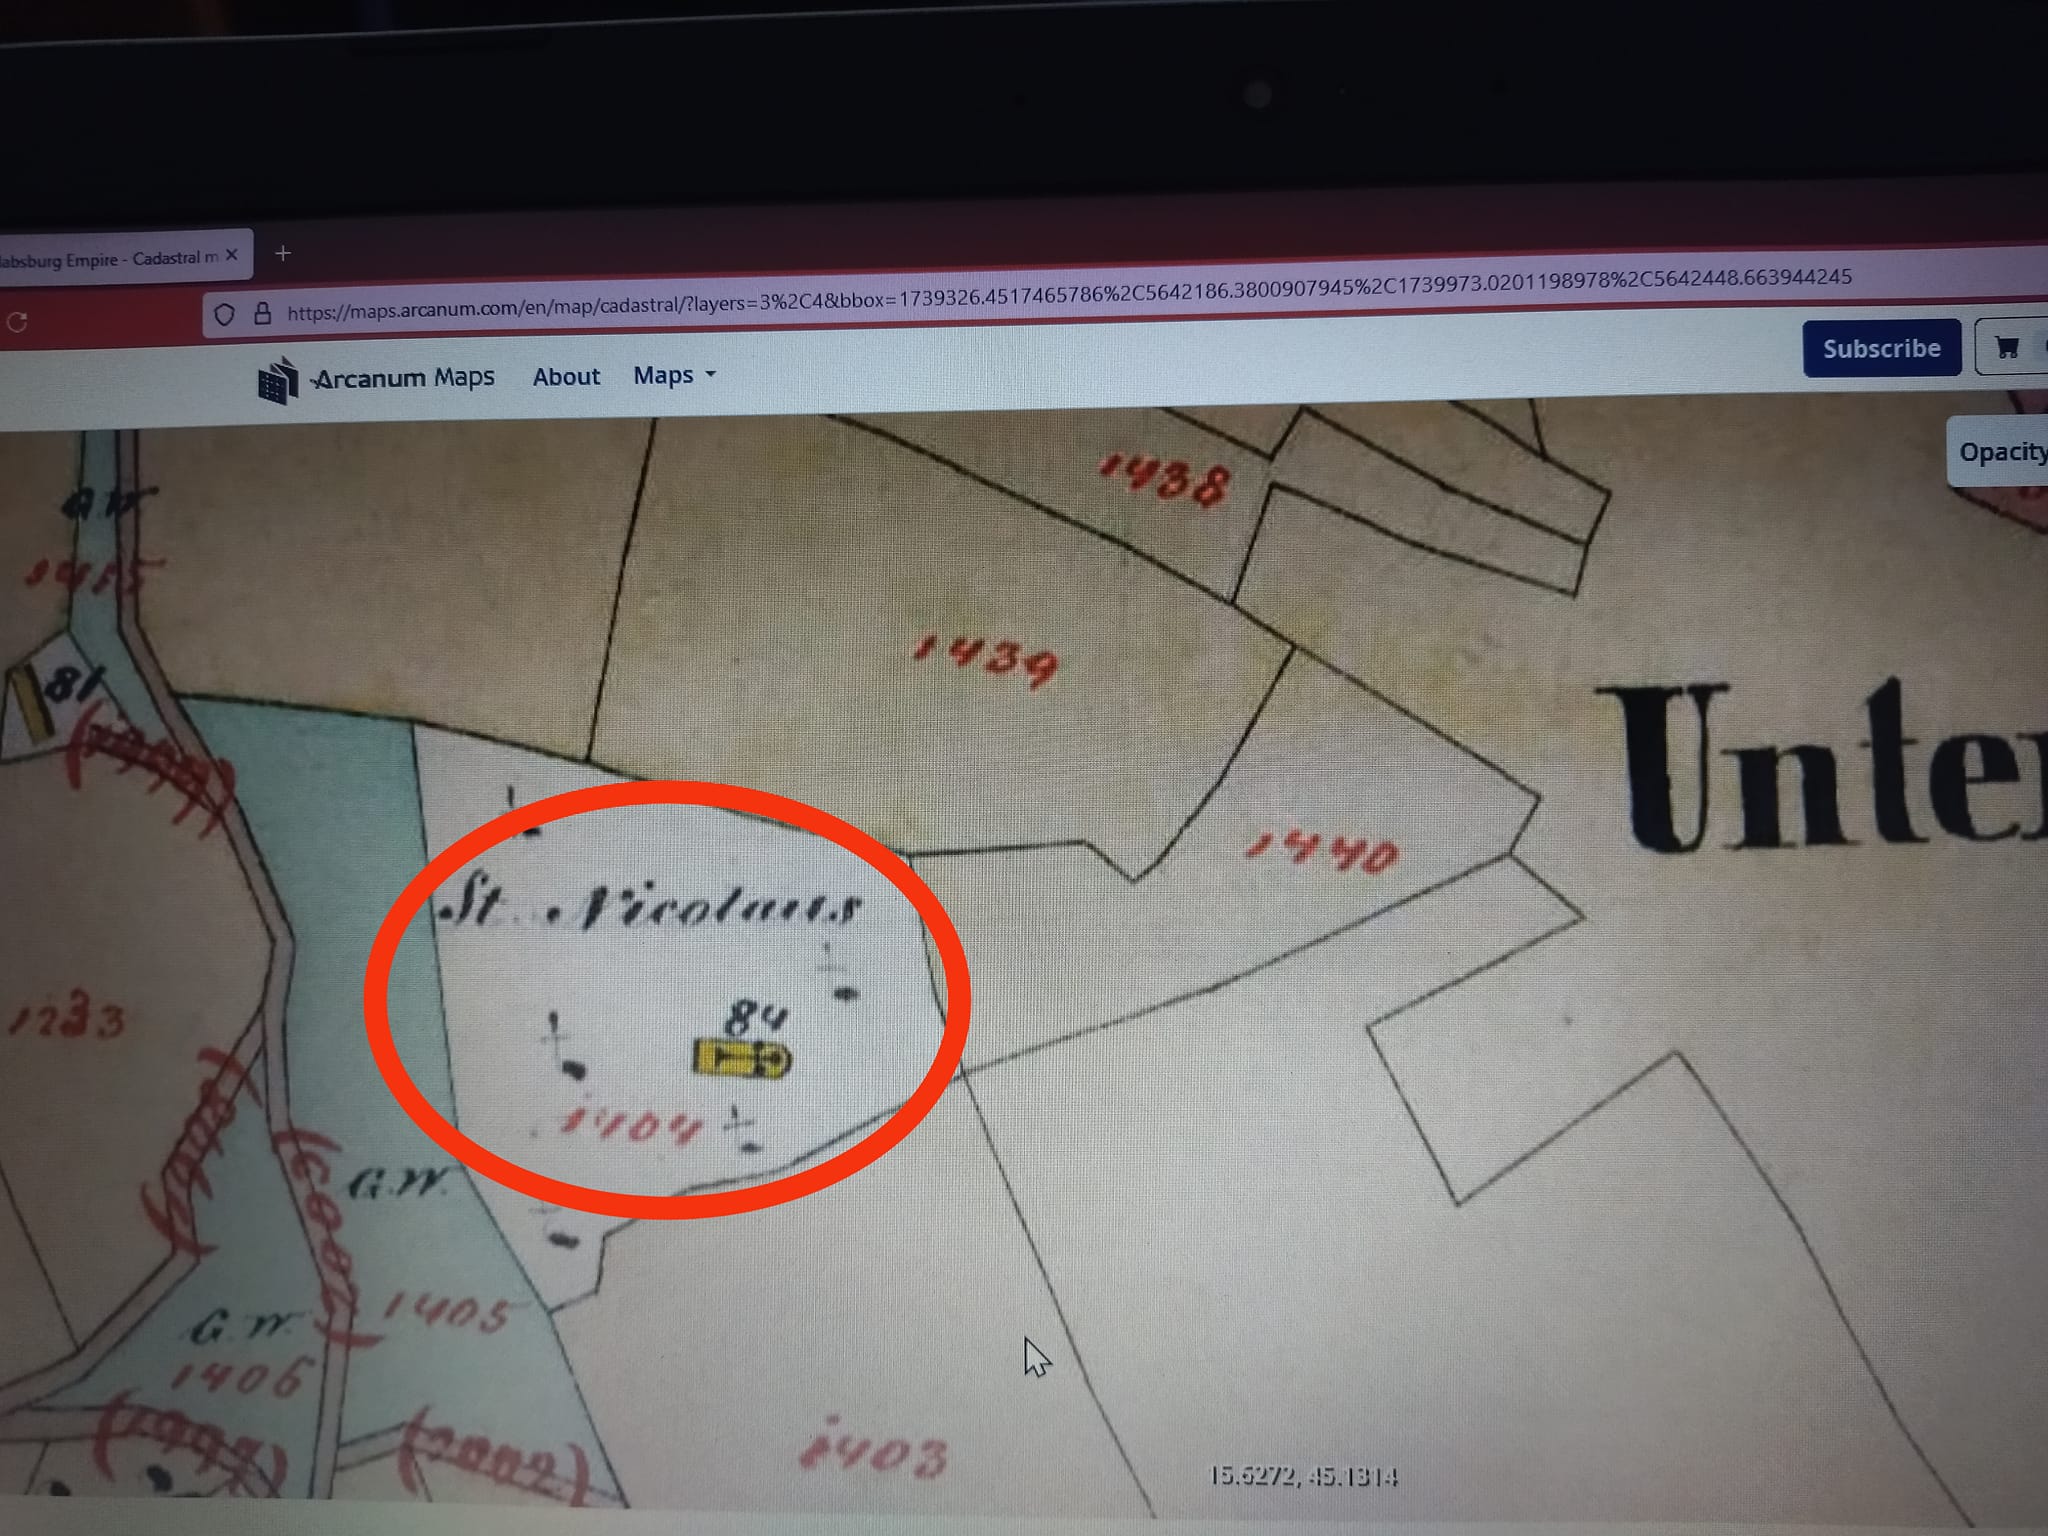 absburg Empire - Cadastral m
https://maps.arcanum.com/en/map/cadastral/?layers=3%2C4&bbox=1739326.4517465786%2C5642186.3800907945%2C1739973.0201198978%2C5642448.663944245
Arcanum Maps About Maps Subscribe
Opacity
G.W
1438
1455
1439
81
Unter
1440
St. Nicolaus
84
1233
1404
G.W.
1405
G.W.
1406
1403
15.6272, 45.1314